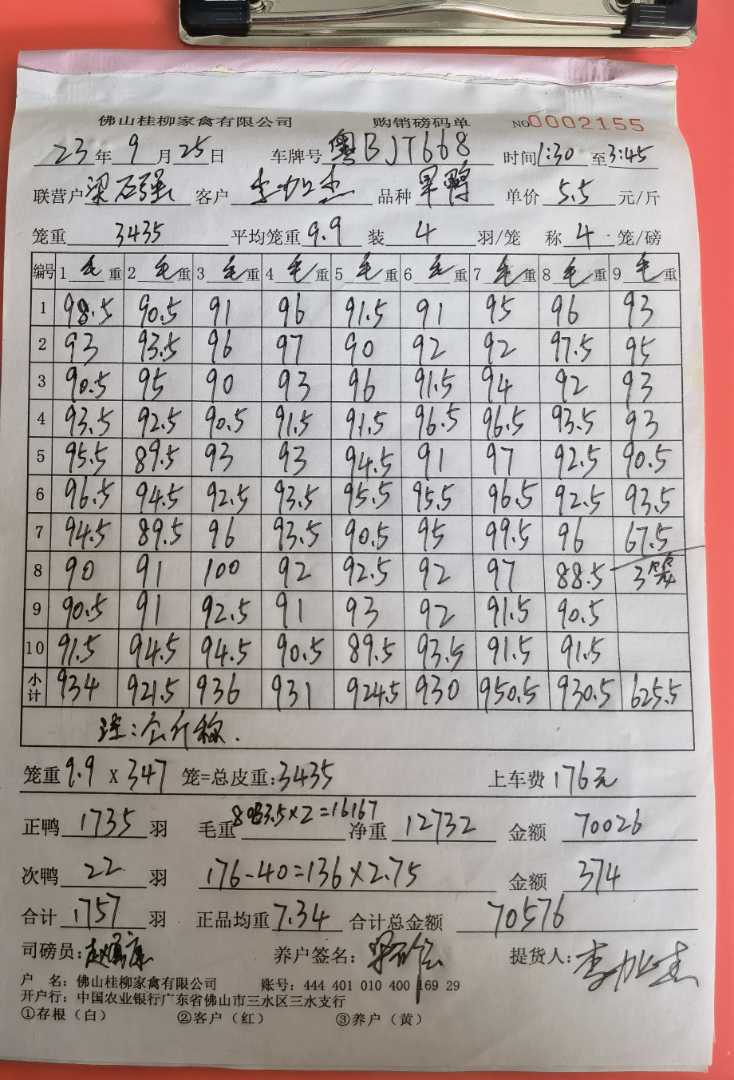 佛山桂柳家禽有限公司 购销磅码单 NO0002155
23年9月25日 车牌号 粤BJT668 时间1:30至3:45
联营户 梁石强 客户 李加杰 品种 旱鸭 单价 5.5 元/斤
笼重 3435 平均笼重 9.9 装 4 羽/笼 称 4 笼/磅
编号 1 毛重 2 毛重 3 毛重 4 毛重 5 毛重 6 毛重 7 毛重 8 毛重 9 毛重
1 98.5 90.5 91 96 91.5 91 95 96 93
2 93 93.5 96 97 90 92 92 97.5 95
3 90.5 95 90 93 96 91.5 94 92 93
4 93.5 92.5 90.5 91.5 91.5 96.5 96.5 93.5 93
5 95.5 89.5 93 93 94.5 91 97 92.5 90.5
6 96.5 94.5 92.5 93.5 95.5 95.5 96.5 92.5 93.5
7 94.5 89.5 96 93.5 90.5 95 99.5 96 67.5
8 90 91 100 92 92.5 92 97 88.5 3笼
9 90.5 91 92.5 91 93 92 91.5 90.5
10 91.5 94.5 94.5 90.5 89.5 93.5 91.5 91.5
小计 934 921.5 936 931 924.5 930 950.5 930.5 625.5
注:公斤称.
笼重 9.9 X 347 笼=总皮重:3435 上车费 176元
正鸭 1735 羽 毛重 8083.5×2=16167 净重 12732 金额 70026
次鸭 22 羽 176-40=136×2.75 金额 374
合计 1757 羽 正品均重 7.34 合计总金额 70576
司磅员: 养户签名: 提货人:李加杰
户 名:佛山桂柳家禽有限公司 账号:444 401 010 400 169 29
开户行:中国农业银行广东省佛山市三水区三水支行
①存根(白) ②客户(红) ③养户(黄)